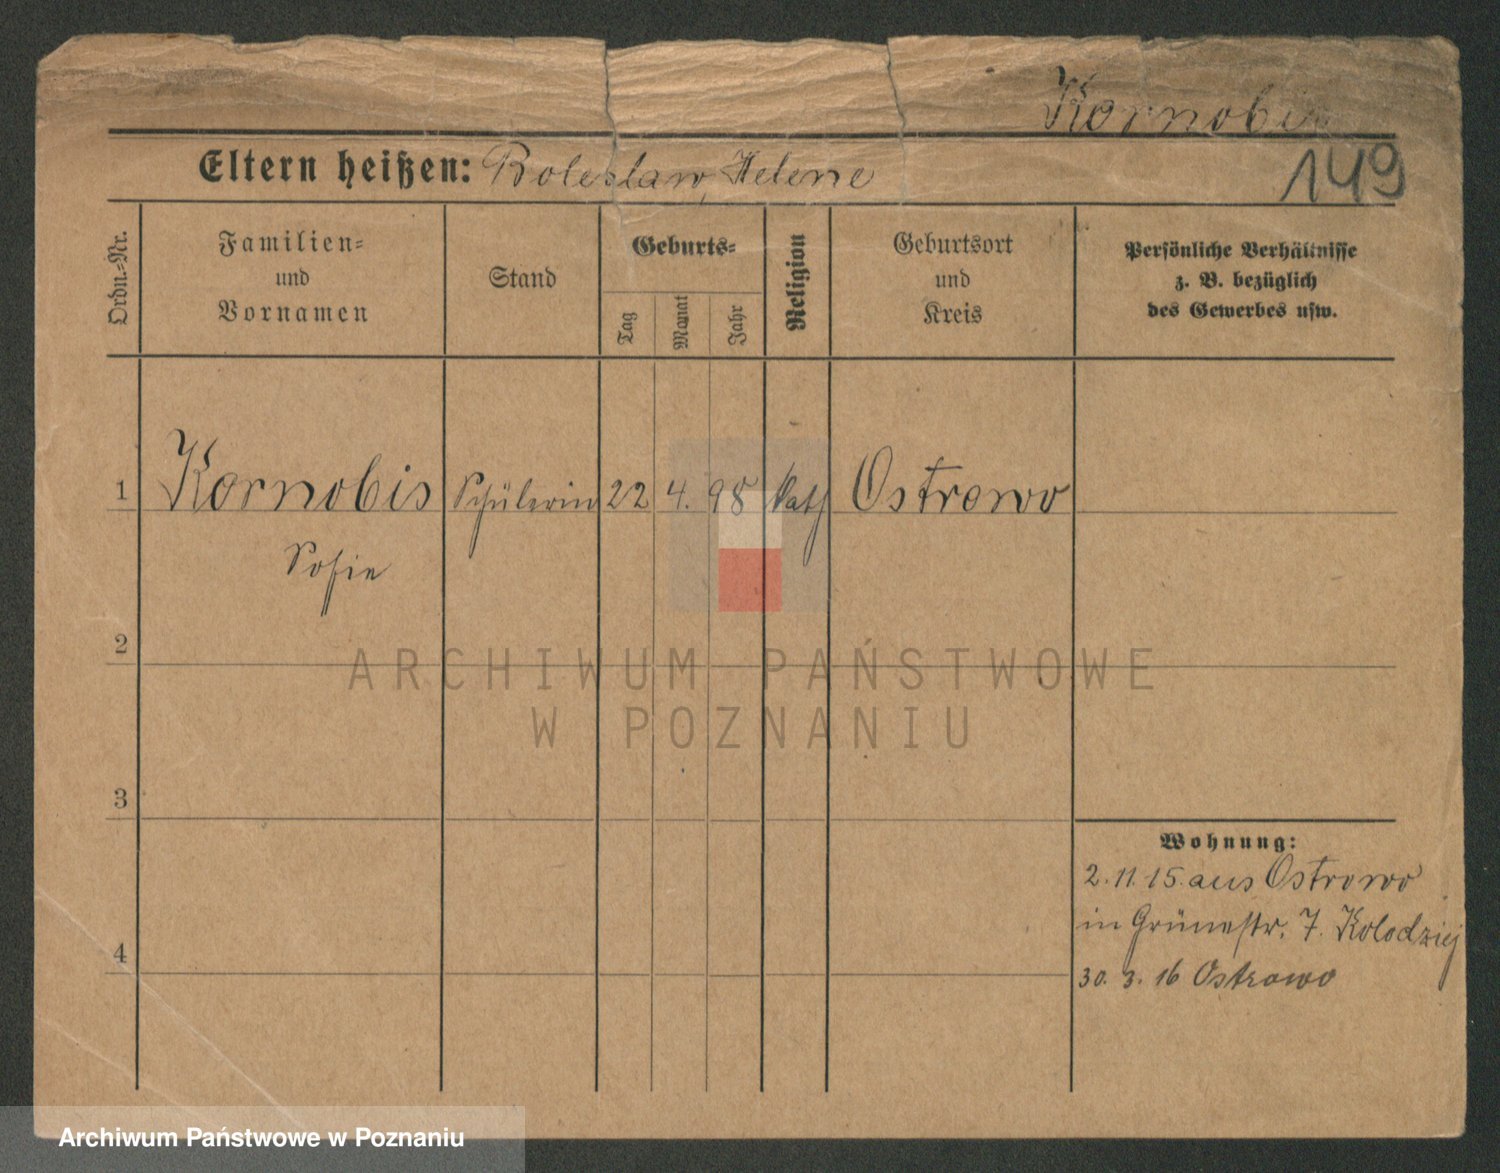 Kornobis
149
Eltern heißen: Boleslaw, Helene
Ordn.=Nr.
Familien=
und
Vornamen
Stand
Geburts=
Tag
Monat
Jahr
Religion
Geburtsort
und
Kreis
Persönliche Verhältnisse
z. B. bezüglich
des Gewerbes usw.
1 Kornobis Schülerin 22 4. 98 kath Ostrowo
Sofie
2
ARCHIWUM PAŃSTWOWE
W POZNANIU
3
Wohnung:
2. 11. 15. aus Ostrowo
in Grünestr. 7. Kolodziej
4
30. 3. 16 Ostrowo
Archiwum Państwowe w Poznaniu